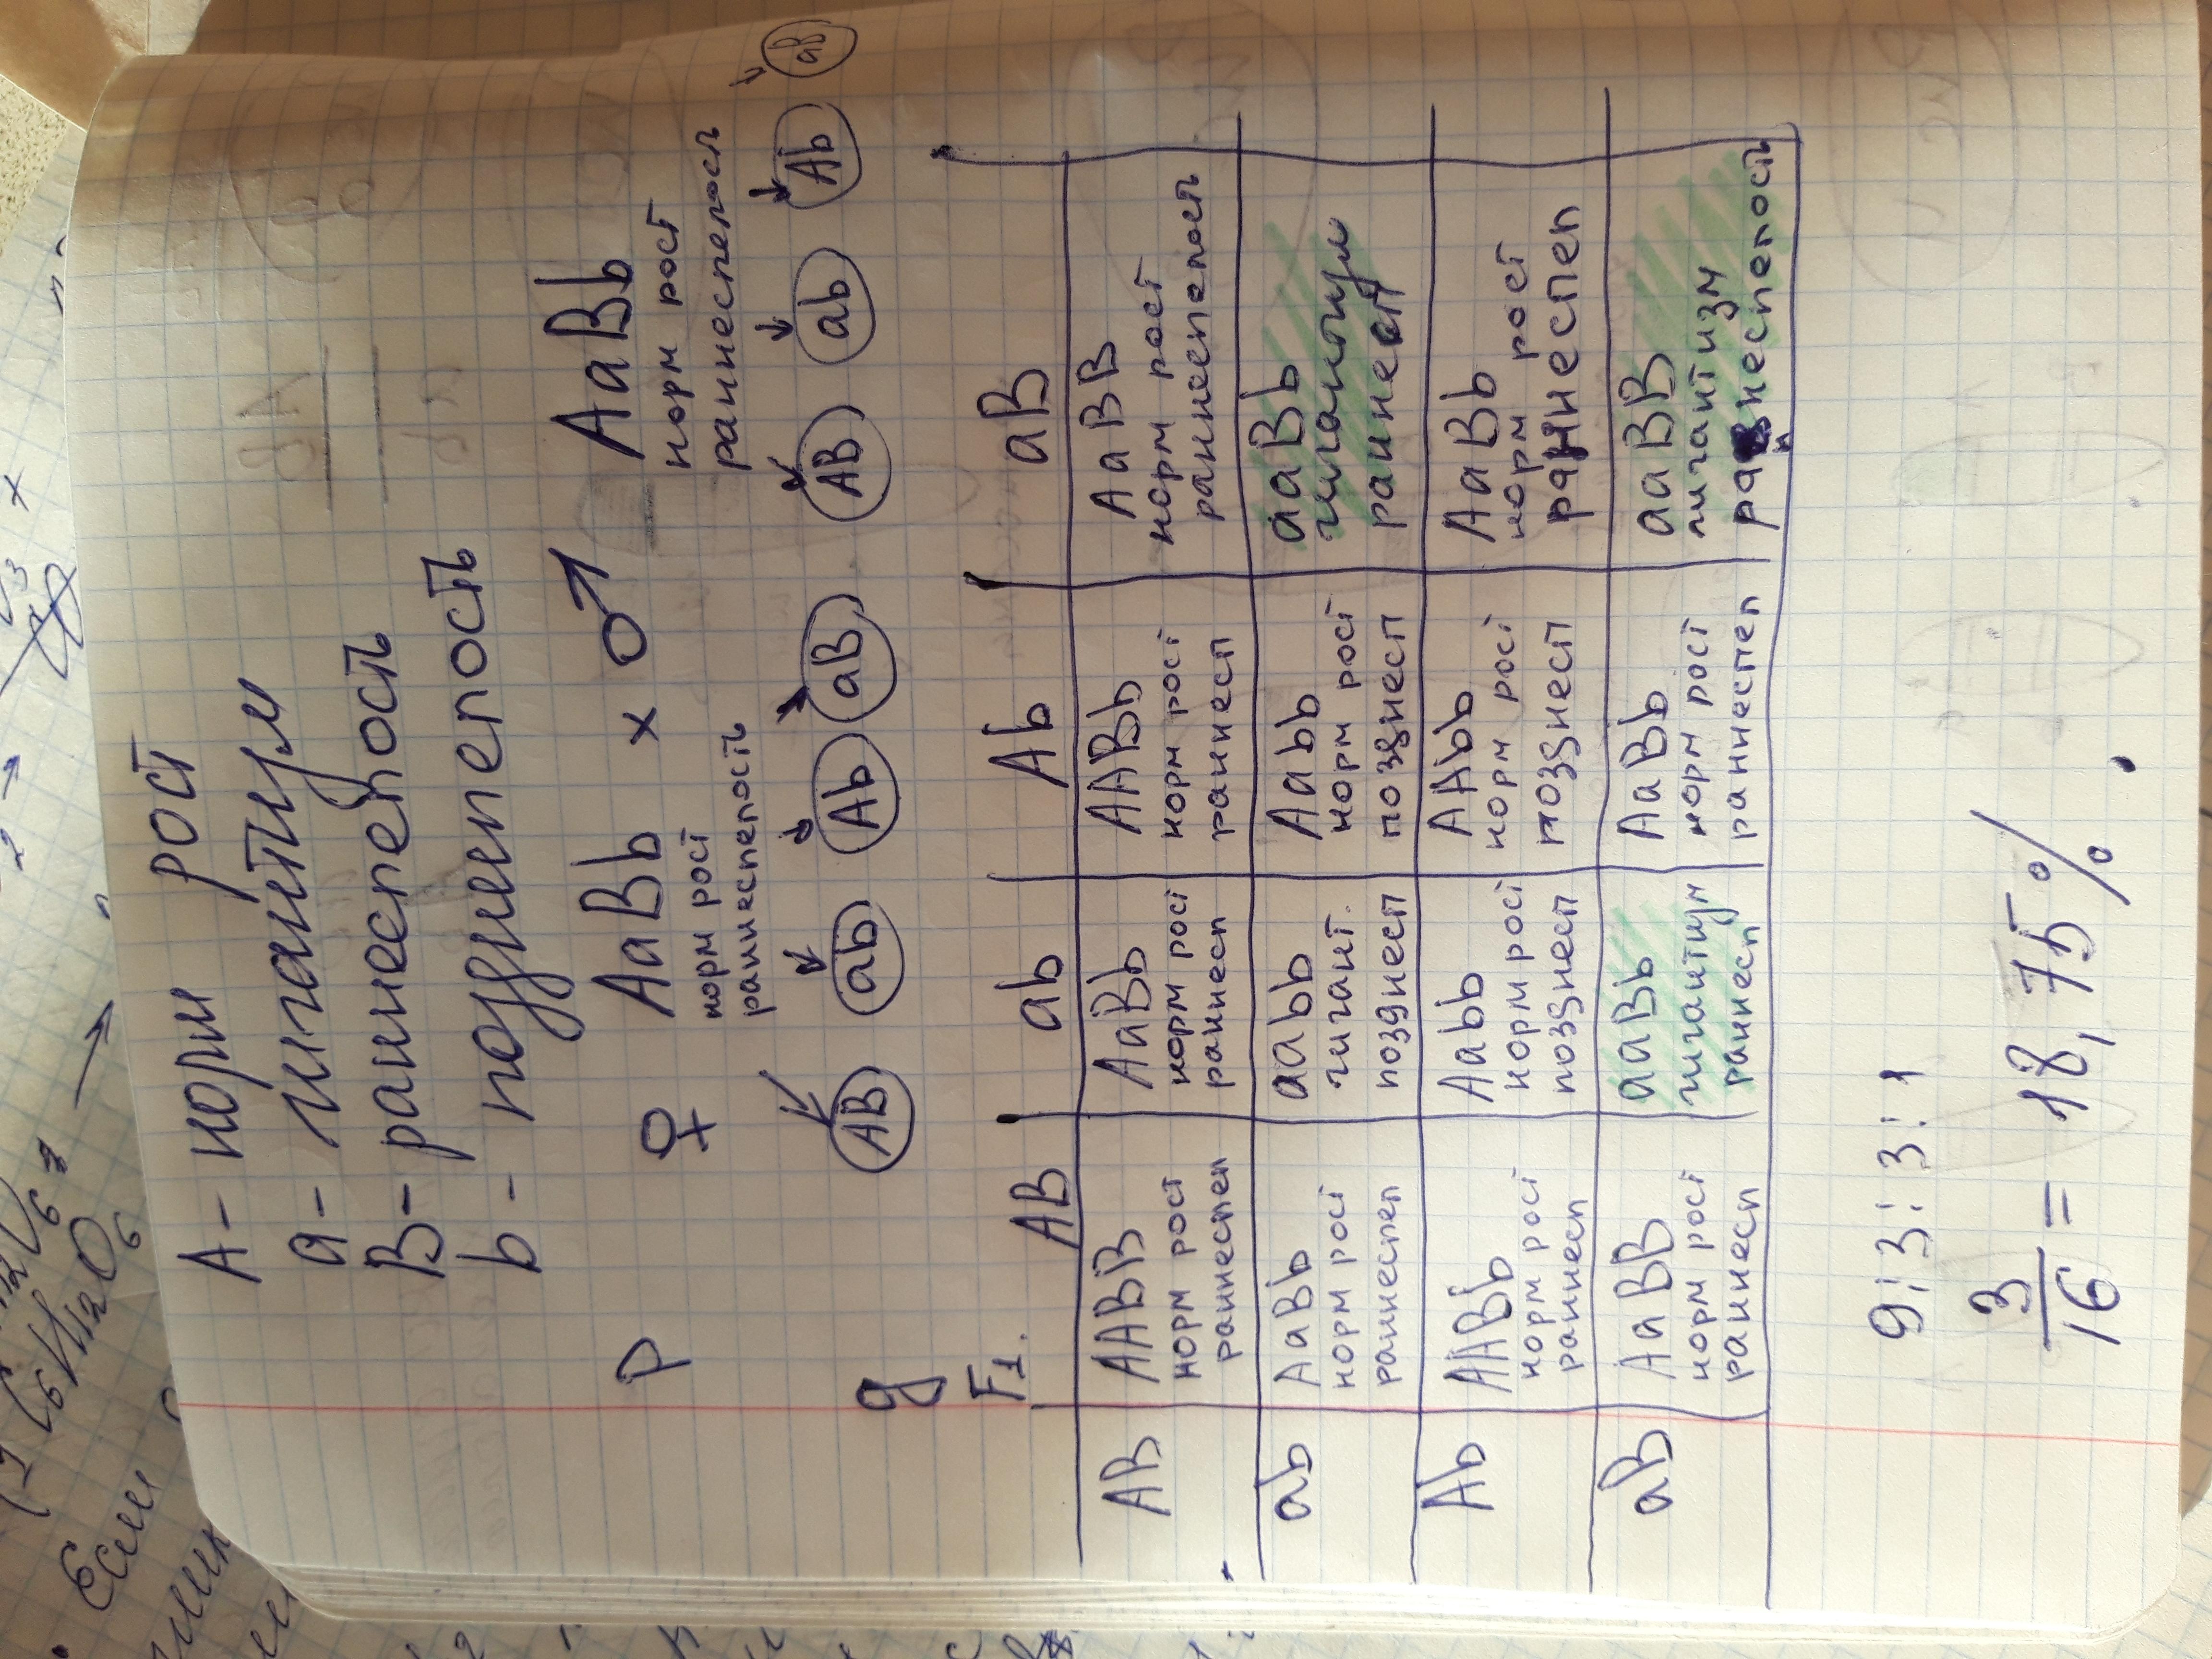 A - норм рост
a - гигантизм
B - раннеспелость
b - позднепелость
P ♀ AaBb x ♂ AaBb
норм рост норм рост
раннеспелость раннеспелость
g AB ab Ab aB AB ab Ab aB
F1.
AB ab Ab aB
AB AABB AaBb AABb AaBB
норм рост норм рост норм рост норм рост
раннеспел раннесп раннесп раннеспелость
ab AaBb aabb Aabb aaBb
норм рост гигант. норм рост гигантизм
раннеспел позднесп позднесп раннесп
Ab AABb Aabb AAbb AaBb
норм рост норм рост норм рост норм рост
раннесп позднесп позднесп раннеспел
aB AaBB aaBb AaBb aaBB
норм рост гигантизм норм рост гигантизм
раннесп раннесп раннеспел раннеспелость
9:3:3:1
3/16 = 18,75%.
Если